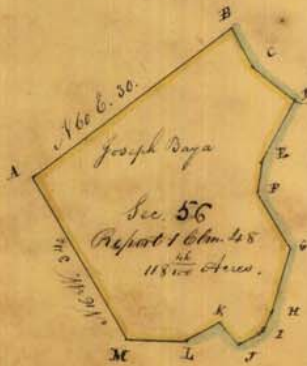 B
C
N 60 E. 30.
Joseph Baya
E
A
F
Sec. 56
Report 1 Clm. 48
118 46/100 Acres.
G
K
H
I
M
L
J